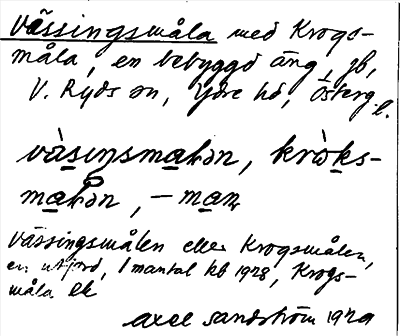 Vässingsmåla med Krogs-
måla, en bebyggd äng, jb,
V. Ryds sn, Ydre hd, Österg.l.
và̀siŋsmalən, krò̀ks-
malən, – man
Vässingsmålen eller Krogsmålen,
en utjord, 1 mantal kb 1928, Krogs-
måla ek
Axel Sandström 1929